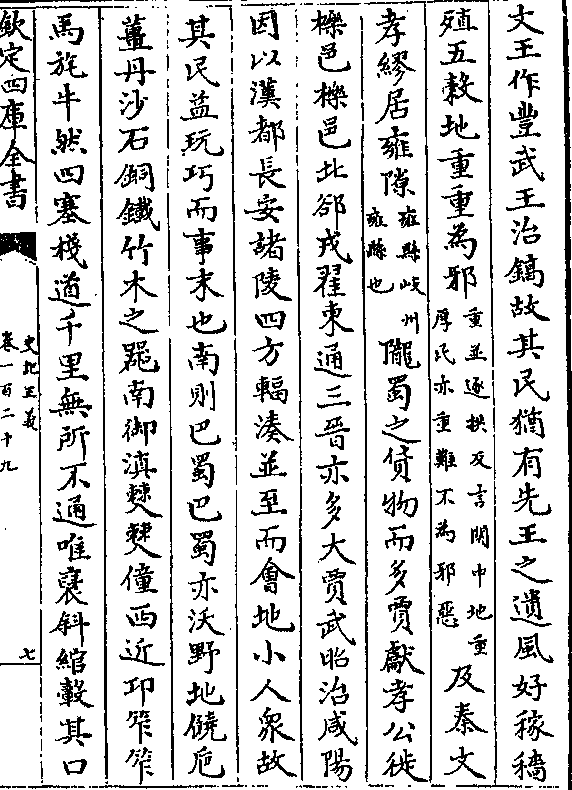 文王作豐武王治鎬故其民猶有先王之遺風好稼穡
殖五榖地重重為邪重並逐拱反言闗中地重厚民亦重難不為邪惡及秦文
孝繆居雍隙雍縣岐州雍縣也隴蜀之貨物而多賈獻孝公徙
櫟邑櫟邑北郤戎翟東通三晉亦多大賈武昭治咸陽
因以漢都長安諸陵四方輻湊並至而會地小人衆故
其民益玩巧而事末也南則巴蜀巴蜀亦沃野地饒巵
薑丹沙石銅鐵竹木之器南御滇僰僰僮西近邛笮笮
馬旄牛然四塞棧道千里無所不通唯襃斜綰轂其口
欽定四庫全書
史記正義
卷一百二十九
七